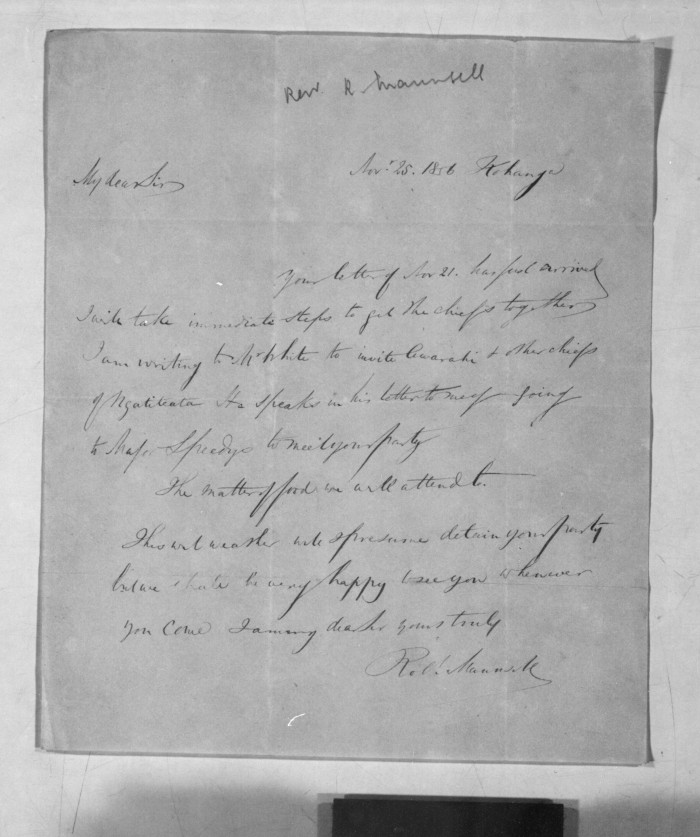 Rev R Maunsell
Nov. 25. 1856 Kohanga
My dear Sir
Your letter of Nov 21. has just arrived
I will take immediate steps to get the chiefs together
I am writing to Mr White to invite & other chiefs
of Ngatiteata He speaks in his letter to me of going
to Major Speedys to meet your party
The matter of food we will attend to.
This wet weather will I presume detain your party
but we shall be very happy to see you whenever
you come I am my dear Sir yours truly
Robt Maunsell